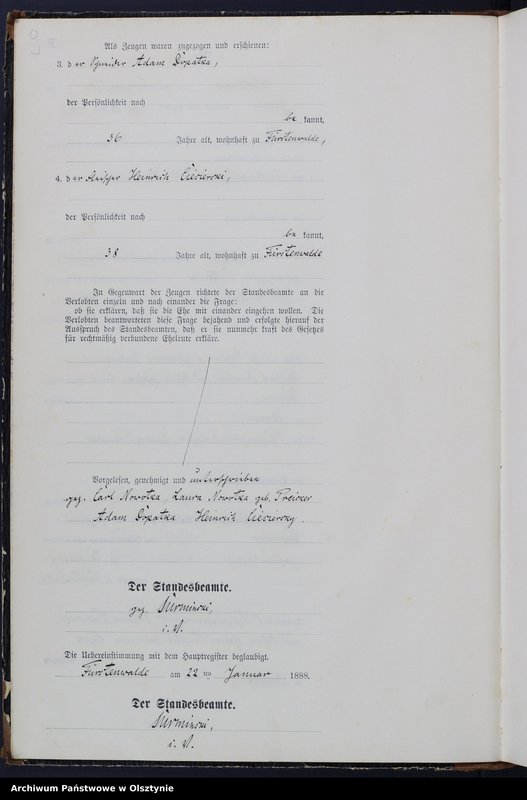 Als Zeugen waren zugezogen und erschienen:
3. der Schneider Adam Dopatka,
der Persönlichkeit nach
be kannt,
36 Jahre alt, wohnhaft zu Fürstenwalde,
4. der Fleischer Heinrich Ciezierski,
der Persönlichkeit nach
be kannt,
38 Jahre alt, wohnhaft zu Fürstenwalde
In Gegenwart der Zeugen richtete der Standesbeamte an die
Verlobten einzeln und nach einander die Frage:
ob sie erklären, daß sie die Ehe mit einander eingehen wollen. Die
Verlobten beantworteten diese Frage bejahend und erfolgte hierauf der
Ausspruch des Standesbeamten, daß er sie nunmehr kraft des Gesetzes
für rechtmäßig verbundene Eheleute erkläre.
Vorgelesen, genehmigt und unterschrieben
gez. Carl Nowotka, Laura Nowotka geb.
Adam Dopatka Heinrich Ciezierzky.
Der Standesbeamte.
gez. Surminski,
i. V.
Die Uebereinstimmung mit dem Hauptregister beglaubigt.
Fürstenwalde am 22 ten Januar 1888.
Der Standesbeamte.
Surminski,
i. V.
Archiwum Państwowe w Olsztynie